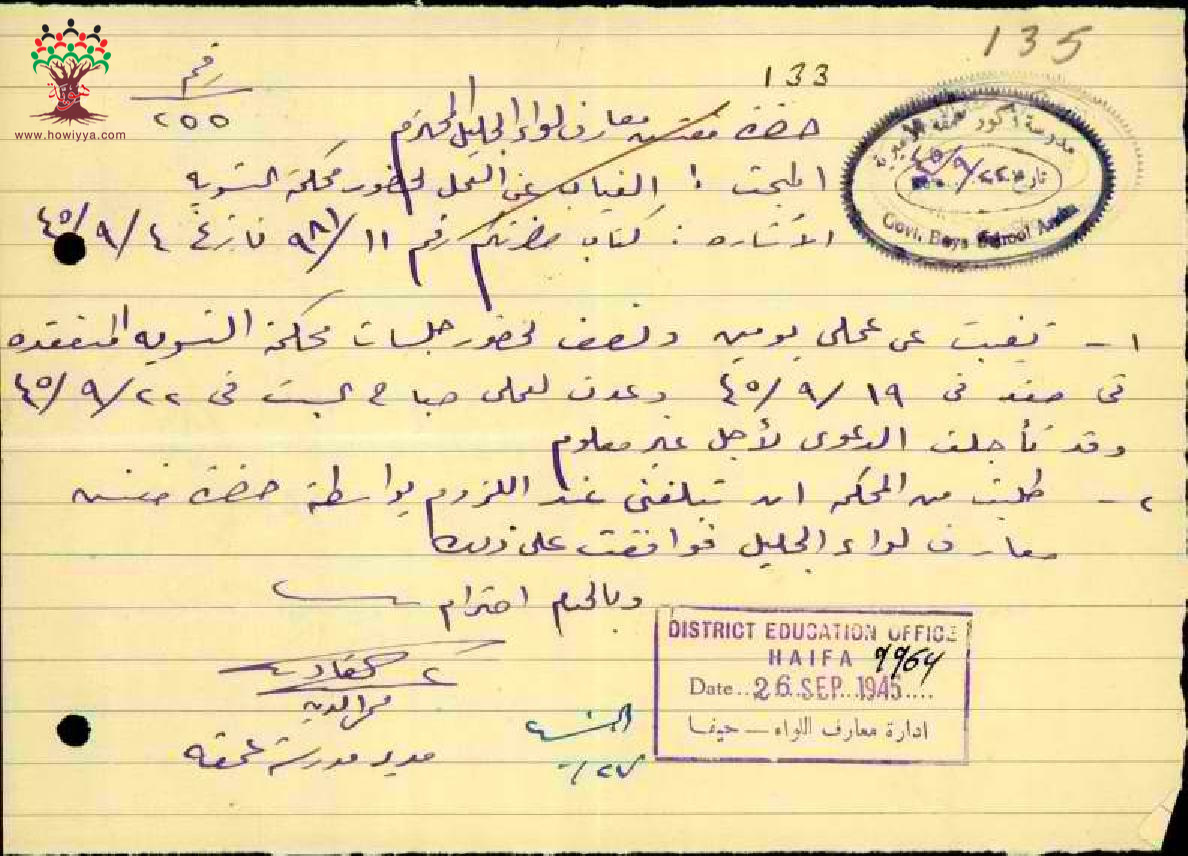 135
133
رقم
٢٥٥
www.howiyya.com
هوية
حضرة مفتش معارف لواء الجليل المحترم
مدرسة ذكور عمقه الاميرية
تاريخ ٤٥/٩/٢٢
Govt. Boys School Amka
المبحث : الغياب عن العمل لحضور محكمة التسويه
الاشاره : كتاب حضرتكم رقم ٩٨/١١ تاريخ ٤٥/٩/٤
١ - تغيبت عن عملي يومين ونصف لحضور جلسات محكمة التسويه المنعقده
في صفد في ٤٥/٩/١٩ وعدت لعملي صباح السبت في ٤٥/٩/٢٢
وقد تأجلت الدعوى لأجل غير معلوم
٢ - طلبت من المحكمه ان تبلغني عند اللزوم بواسطة حضرة مفتش
معارف لواء الجليل فوافقت على ذلك
وبالختام احترام
DISTRICT EDUCATION OFFICE
HAIFA 7964
Date 26 SEP. 1945
ادارة معارف اللواء – حيفا
مدير مدرسة عمقه